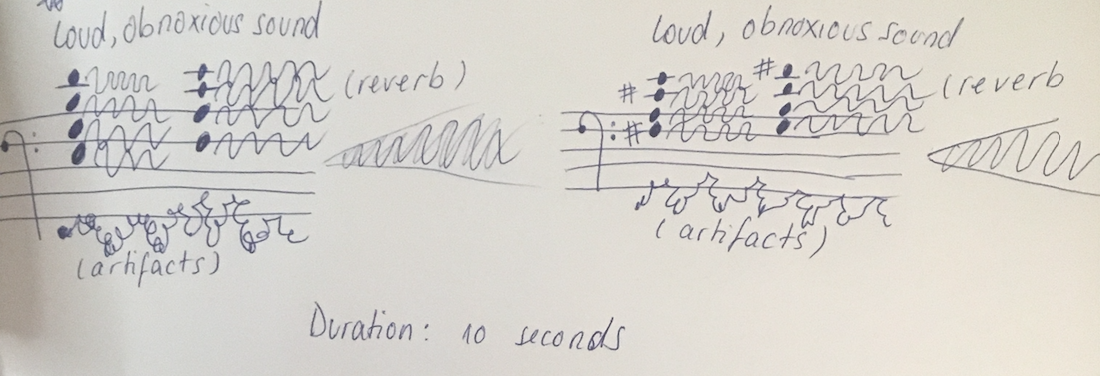 Loud, obnoxious sound
(reverb)
(artifacts)
Loud, obnoxious sound
# #
#
(reverb
(artifacts)
Duration: 10 seconds